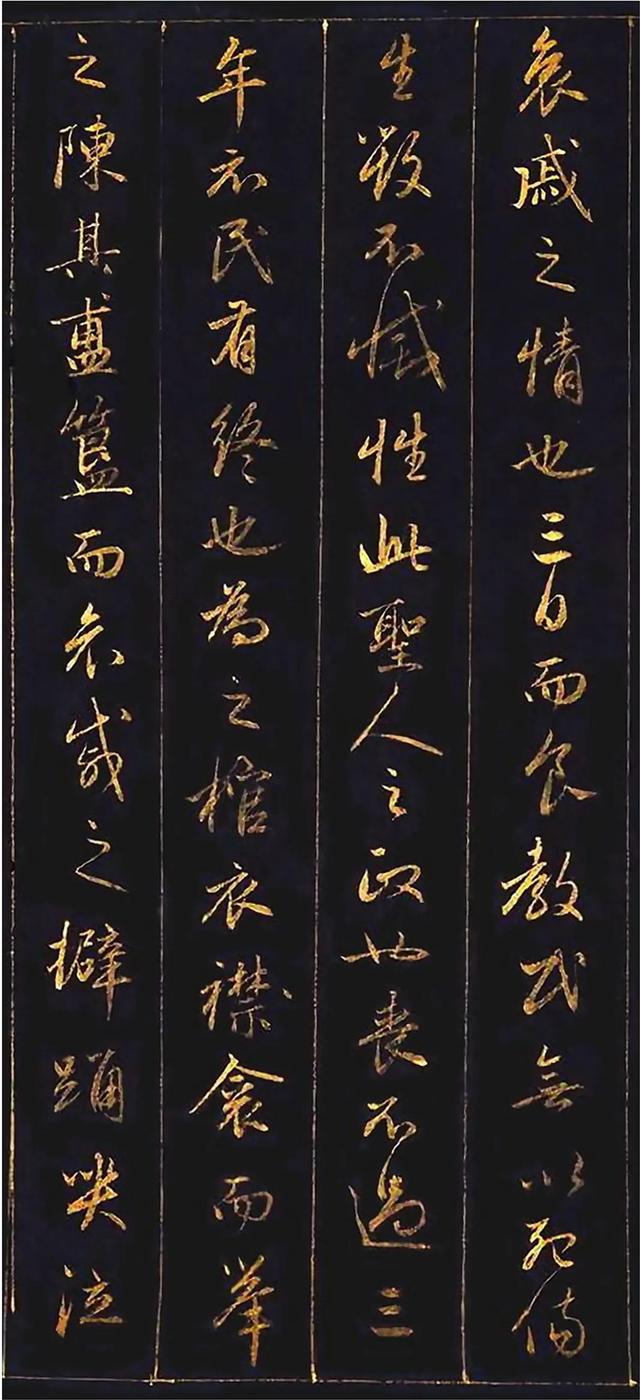 哀戚之情也三日而食教民無以死傷
生毀不滅性此聖人之政也喪不過三
年示民有終也為之棺衣襟衾而举
之陳其盙簋而哀戚之擗踊哭泣